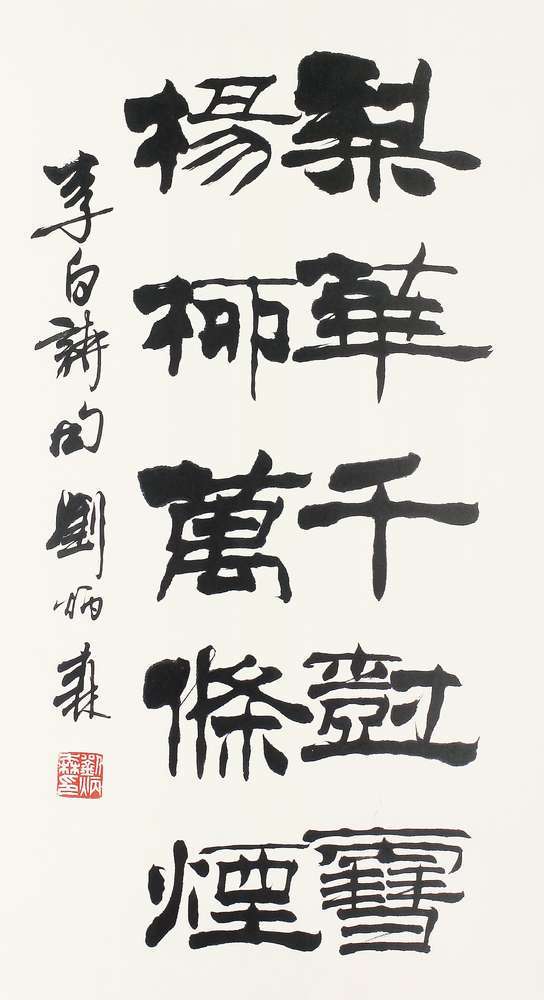 梨華千尌雪
楊柳萬條煙
李白詩句 劉炳森
劉炳森印